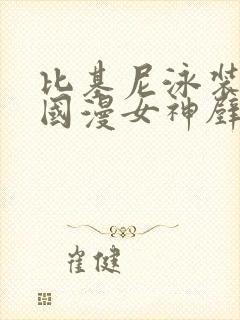 比基尼泳装
國漫女神壁
崔健